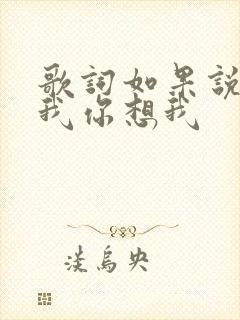 歌詞如果說
我你想我
淡烏央